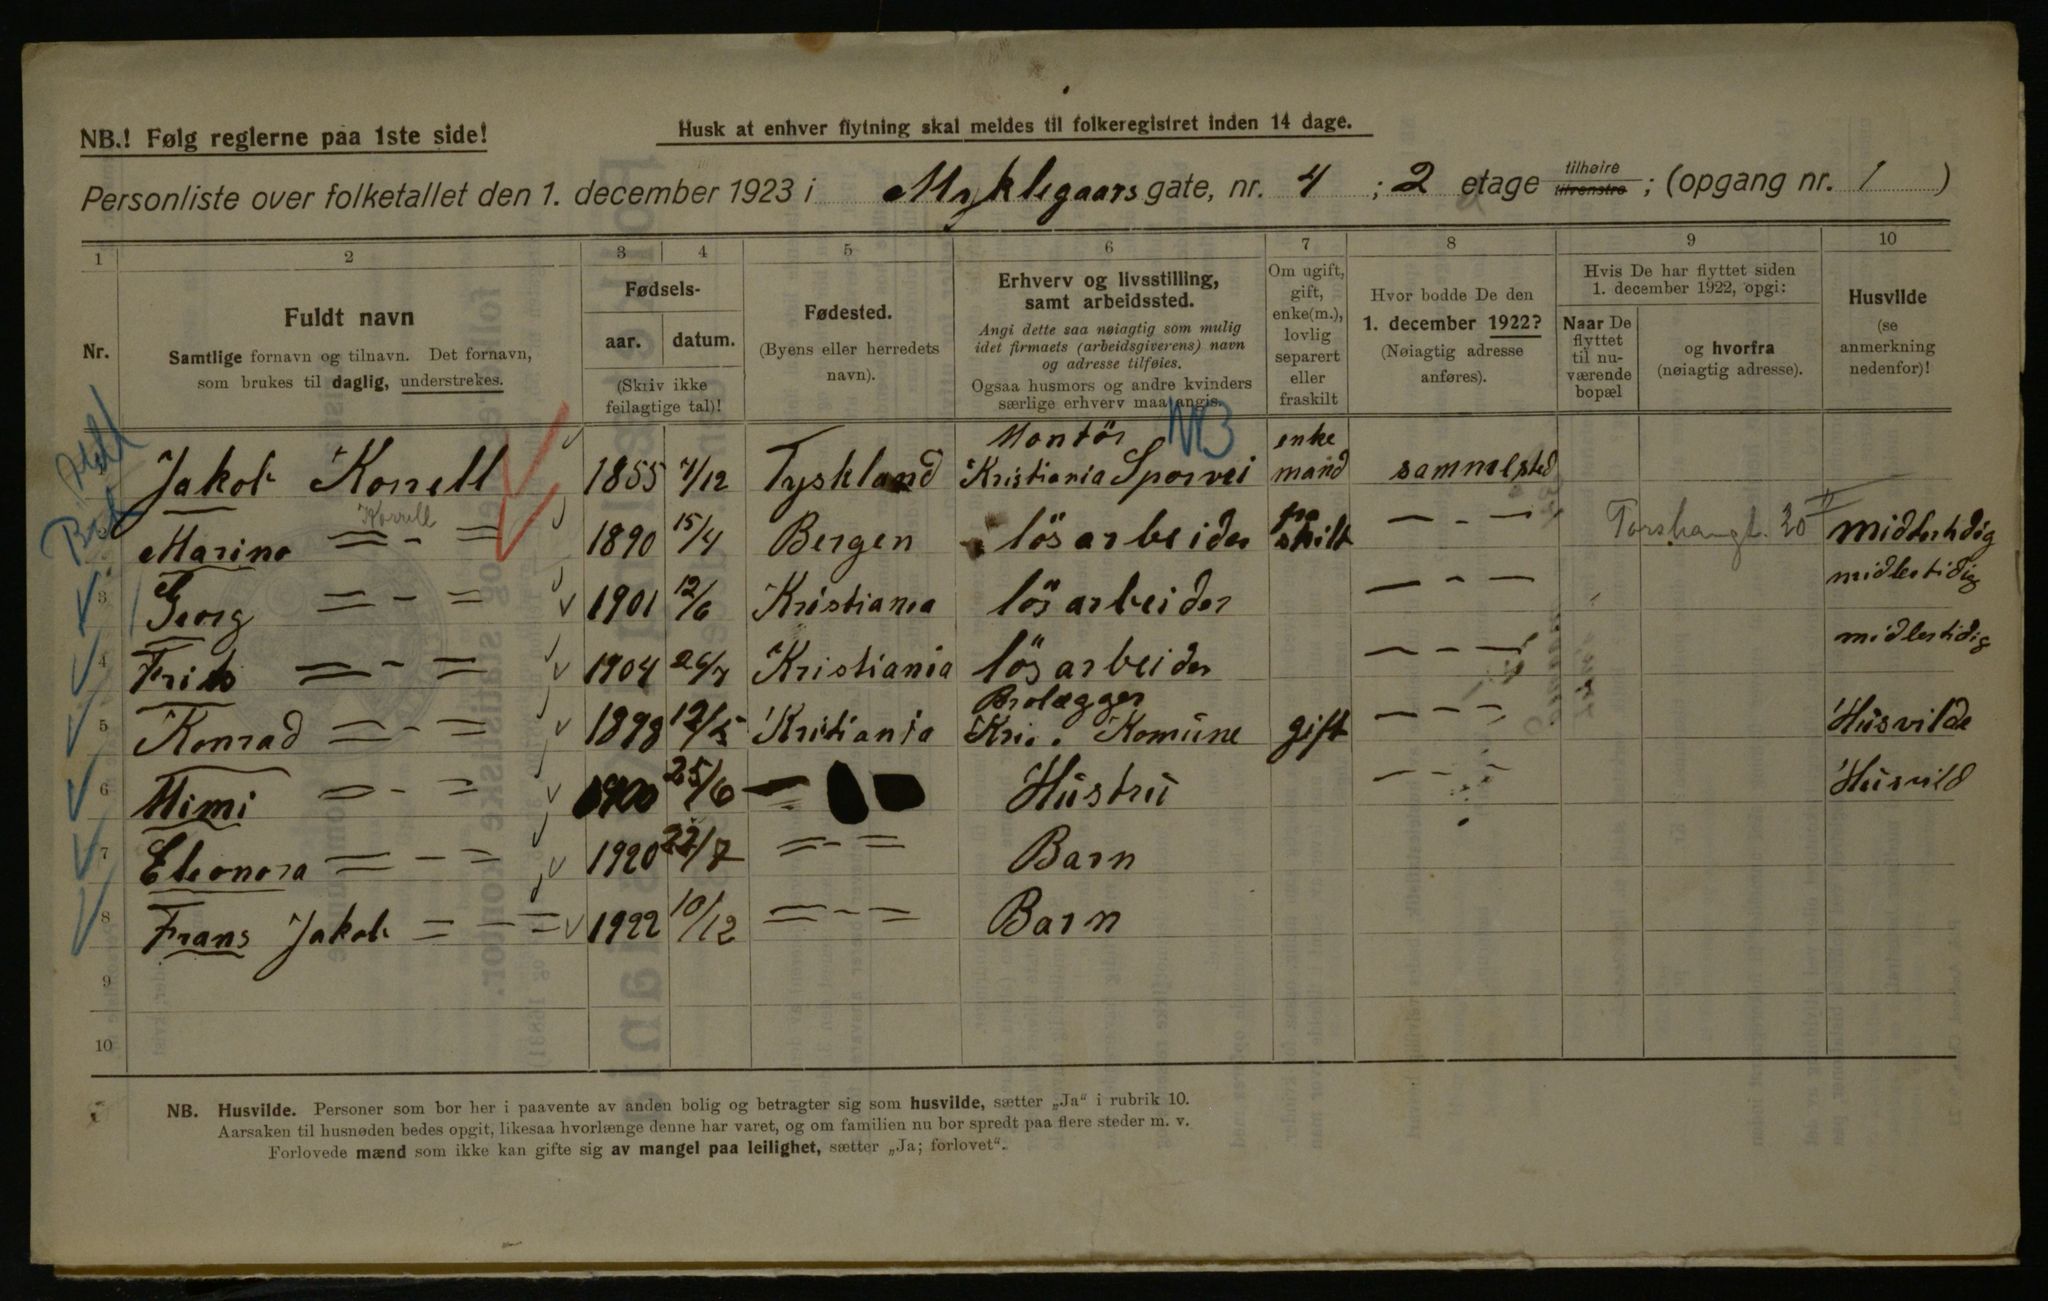 NB.! Følg reglerne paa 1ste side!
Husk at enhver flytning skal meldes til folkeregistret inden 14 dage.
Personliste over folketallet den 1. december 1923 i Myklegaars gate, nr. 4 ; 2 etage tilhøire tilvenstre ; (opgang nr. 1 )
1 2 3 4 5 6 7 8 9 10
Nr.
Fuldt navn
Samtlige fornavn og tilnavn. Det fornavn,
som brukes til daglig, understrekes.
Fødsels-
aar. datum.
(Skriv ikke
feilagtige tal)!
Fødested.
(Byens eller herredets
navn).
Erhverv og livsstilling,
samt arbeidssted.
Angi dette saa nøiagtig som mulig
idet firmaets (arbeidsgiverens) navn
og adresse tilføies.
Ogsaa husmors og andre kvinders
særlige erhverv maa angis.
Om ugift,
gift,
enke(m.),
lovlig
separert
eller
fraskilt
Hvor bodde De den
1. december 1922?
(Nøiagtig adresse
anføres).
Hvis De har flyttet siden
1. december 1922, opgi:
Naar De
flyttet
til nu-
værende
bopæl
og hvorfra
(nøiagtig adresse).
Husvilde
(se
anmerkning
nedenfor)!
NB
Montör enke
Jakob Korrell 1855 7/12 Tyskland Kristiania Sporvei mand sammested
Korrell
2 Marino = - = 1890 15/4 Bergen lösarbeider fraskilt — - — 20 II midlertidig
3 Georg = - = 1901 12/6 Kristiania lösarbeider — - — midlertidig
4 Frits = - = 1904 26/7 Kristiania lösarbeider — - — midlertidig
Brolægger
5 Konrad = - = 1898 12/5 Kristiania Kria. Komüne gift — - — Hüsvilde
6 Mimi = - = 1900 25/6 Hüstrü — - — Hüsvild
7 Eleonora = - = 1920 22/7 = - = Barn
8 Frans Jakob = - = 1922 10/12 = - = Barn
9
10
NB. Husvilde. Personer som bor her i paavente av anden bolig og betragter sig som husvilde, sætter „Ja“ i rubrik 10.
Aarsaken til husnøden bedes opgit, likesaa hvorlænge denne har varet, og om familien nu bor spredt paa flere steder m. v.
Forlovede mænd som ikke kan gifte sig av mangel paa leilighet, sætter „Ja; forlovet“.